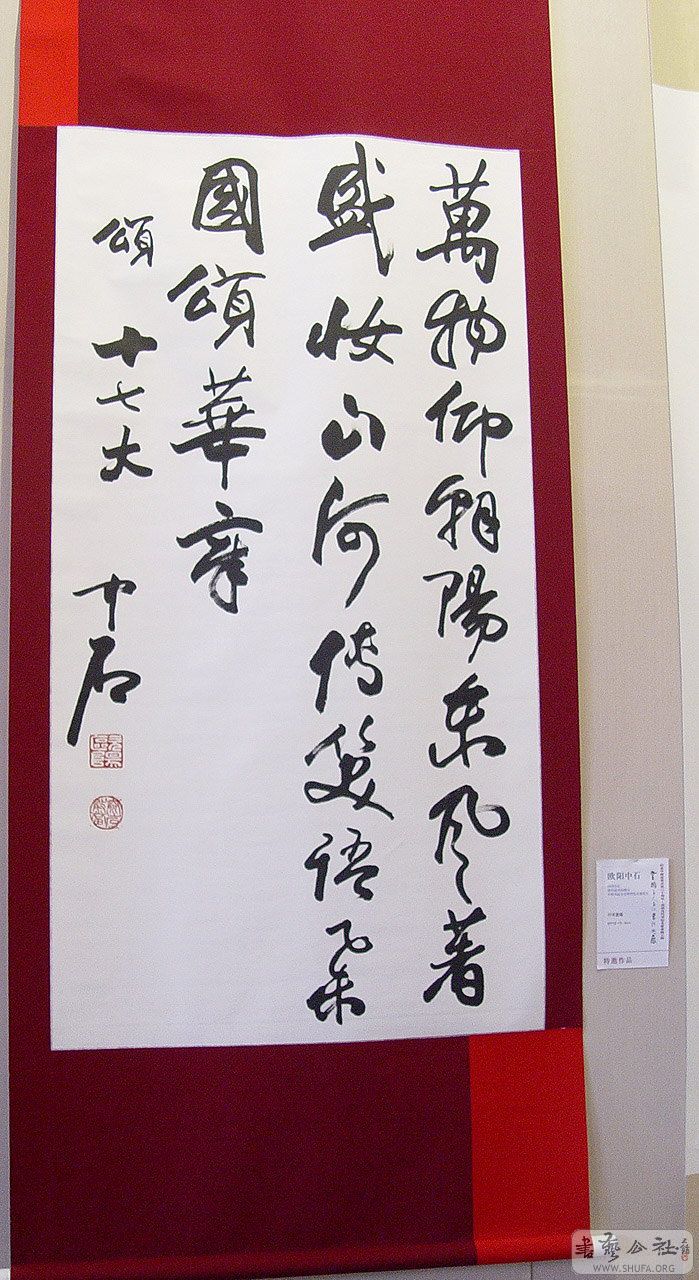 萬物仰朝陽東風著
盛妝山河傳笑語舉
國頌華章
頌 十七大
中石
欧阳中石
特邀作品
書藝公社
WWW.SHUFA.ORG